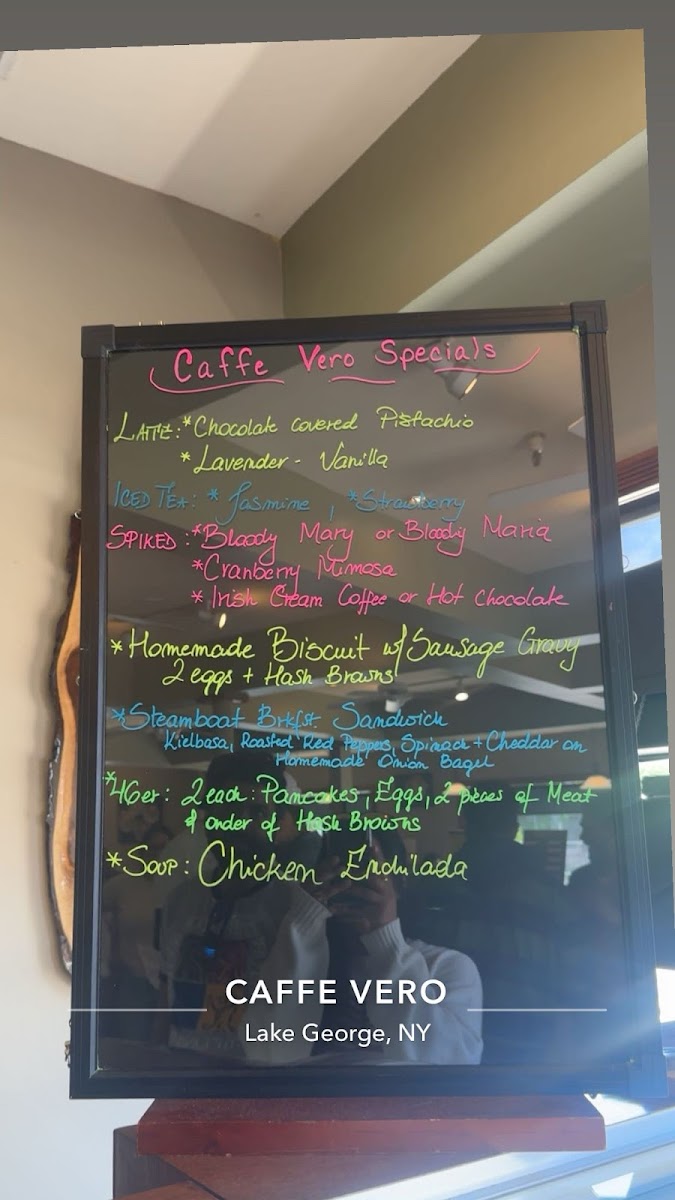 Caffe Vero Specials
LATTE: *Chocolate covered Pistachio
* Lavender - Vanilla
ICED TEA: * Jasmine, *Strawberry
SPIKED: *Bloody Mary or Bloody Maria
*Cranberry Mimosa
* Irish Cream Coffee or Hot Chocolate
*Homemade Biscuit w/ Sausage Gravy
2 eggs + Hash Browns
*Steamboat Brkfst Sandwich
Kielbasa, Roasted Red Peppers, Spinach + Cheddar on
Homemade Onion Bagel
*46er: 2 each: Pancakes, Eggs, 2 pieces of Meat
& order of Hash Browns
*Soup: Chicken Enchilada
CAFFE VERO
Lake George, NY